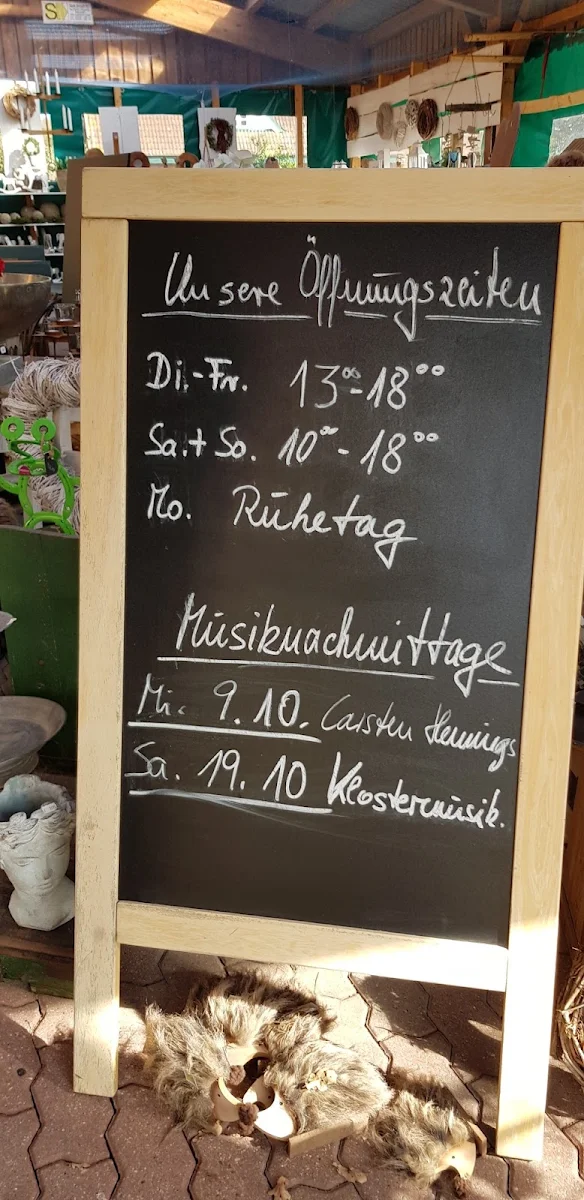 Unsere Öffnungszeiten
Di.-Fr. 13⁰⁰-18⁰⁰
Sa.+ So. 10⁰⁰-18⁰⁰
Mo. Ruhetag
Musiknachmittage
Mi. 9.10. Carsten Hennings
Sa. 19.10 Klostermusik.